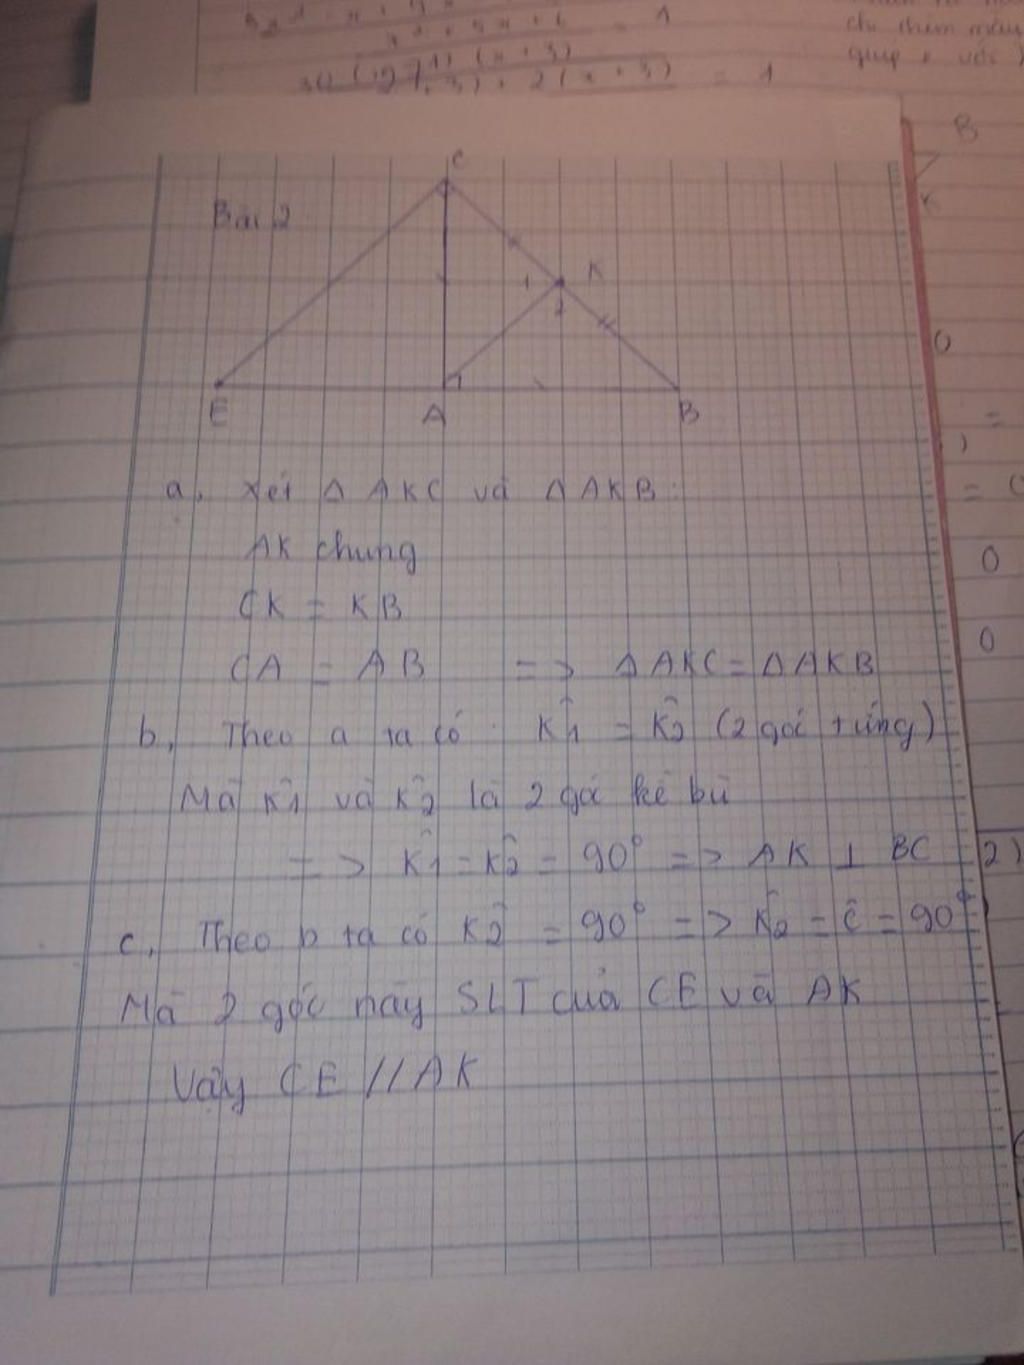 = 1
= 1
B
C
Bài 2
K
1
2
E
A
B
a, Xét Δ AKC và Δ AKB:
AK chung
CK = KB
CA = AB => Δ AKC = Δ AKB
b, Theo a ta có: K̂1 = K̂2 (2 góc t ứng)
Mà K̂1 và K̂2 là 2 gó kề bù
=> K̂1 = K̂2 = 90° => AK ⊥ BC
c, Theo b ta có K̂2 = 90° => K̂2 = Ĉ = 90°
Mà 2 góc này SLT của CE và AK
Vậy CE // AK
0
=
0
0
2)